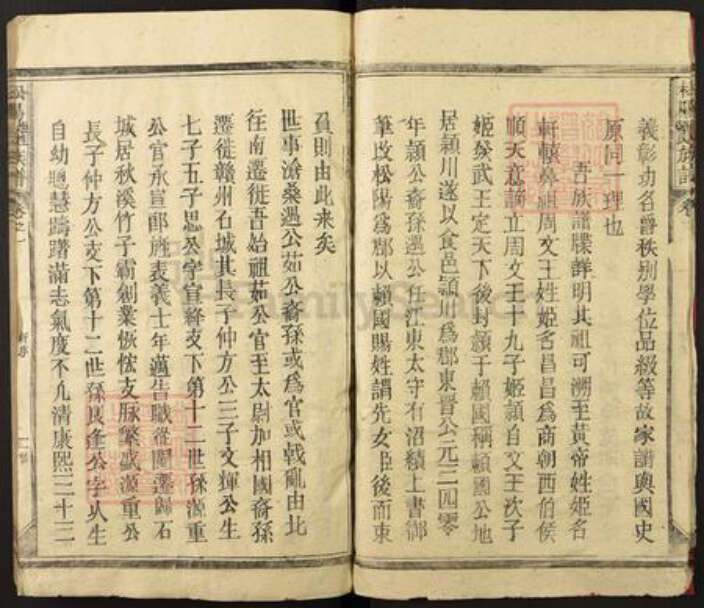 義彰功名晉秩別學位品綴等故家譜與國史
原同一理也
吾族譜牒詳明其祖可溯至黃帝姓姬名
軒轅鼻祖周文王姓姬名昌昌為商朝西伯侯
順天意調立周文王十九子姬頴自文王次子
姬發武王定天下後封頴于賴國稱賴國公地
居頴川遂以食邑頴川為郡東晋公元三四零
年頴公裔孫遇公任江東太守有沼績上書御
筆改松陽為郡以賴國賜姓謂先女臣後而東
負則由此来矣
世事滄桑遇公茹公裔孫或為官或戟亂由北
往南遷徙吾始祖茹公官至太尉加相國裔孫
遷徙贛州石城其長子仲方公三子文輝公生
七子五子思公字宣鋒支下第十二世孫源重
公官承宣郎旌表義士年邁告職登園遷歸石
城居秋溪竹子霸創業恢宏支脉繁盛源重公
長子仲方公支下第十二世孫國逢公字以人生
自幼聰慧躊躇滿志氣度不凡清康熙三十三
松陽賴氏族譜
卷之一